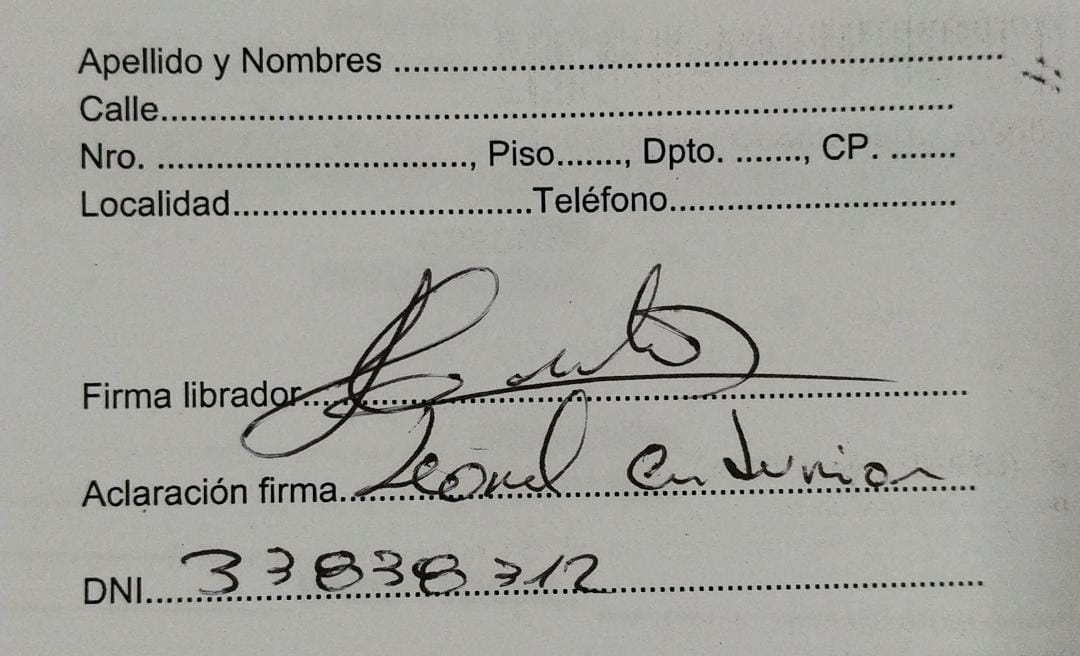 Apellido y Nombres ..............................................................................
Calle.....................................................................................................
Nro. ................................., Piso......., Dpto. ......., CP. .......
Localidad................................Teléfono...............................
Firma librador....................................................................
Aclaración firma. Leonel
DNI..... 33838312 ........................................